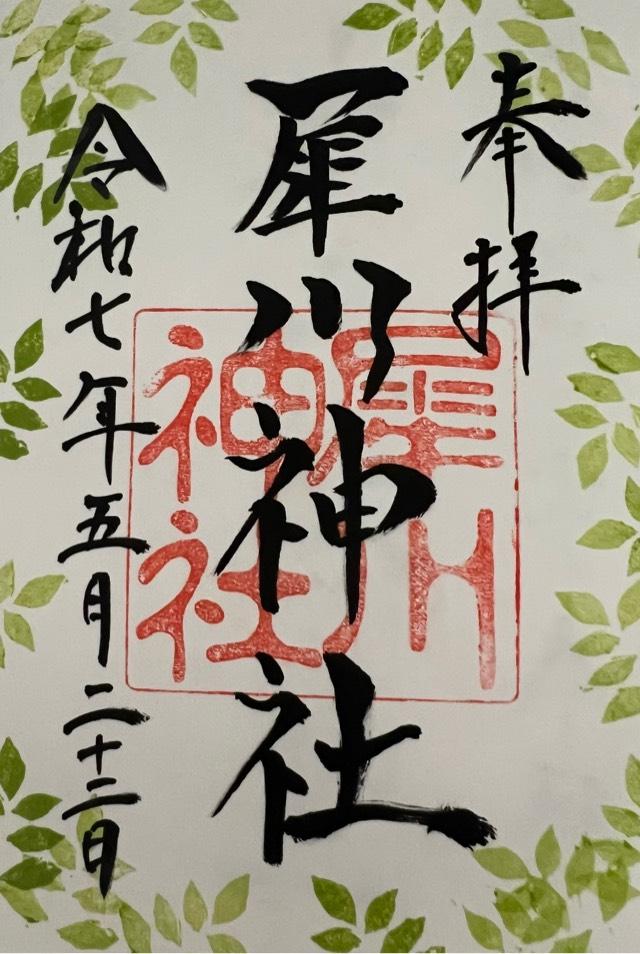 奉拝
犀川神社
令和七年五月二十二日
犀川
神社